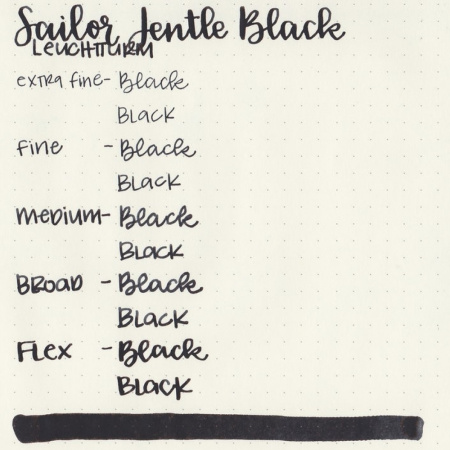 Sailor Jentle Black
LEUCHTTURM
extra fine- Black
BLACK
fine - Black
BLACK
medium- Black
BLACK
BROAD - Black
BLACK
Flex - Black
BLACK